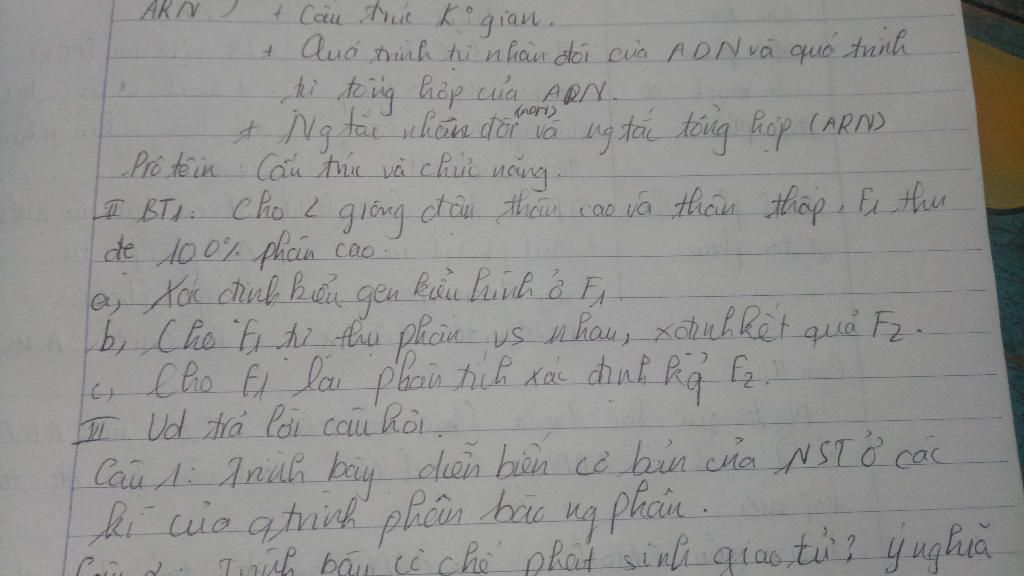 ARN) + Cấu trúc K° gian.
+ Quá trình tự nhân đôi của ADN và quá trình
tự tổng hợp của ARN.
+ Ng tắc nhân đôi (ADN) và ng tắc tổng hợp (ARN)
Prôtêin Cấu trúc và chức năng.
II BT1: Cho 2 giống đậu thân cao và thân thấp, F1 thu
đc 100% phân cao.
a, Xác định kiểu gen kiểu hình ở F1.
b, Cho F1 tự thụ phấn vs nhau, xđịnh kết quả F2.
c, Cho F1 lai phân tích xác định kq̉ F2.
III Vd trả lời câu hỏi.
Câu 1: Trình bày diễn biến cơ bản của NST ở các
kì của qtrình phân bào ng phân.
Câu 2: Trình bày cơ chế phát sinh giao tử? ý nghĩa